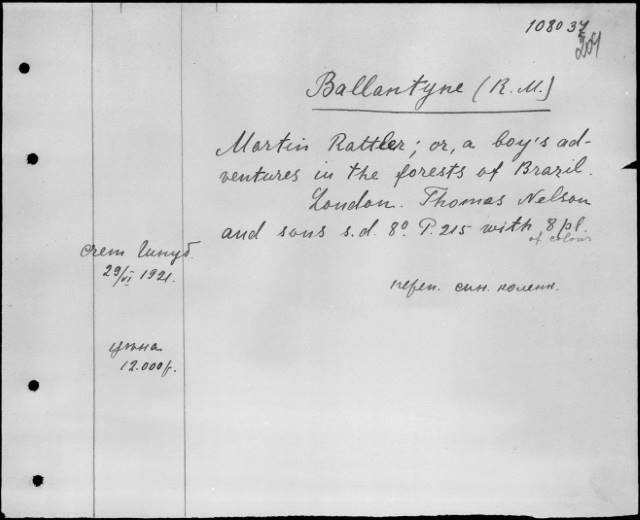 108037
Ballantyne (R. M.)
Martin Rattler; or, a boy's ad-
ventures in the forests of Brazil.
London. Thomas Nelson
and sons s.d. 8º P. 215 with 8 pl.
of colour
счет
29/VI 1921.
перепл. син. коленк.
цена
12.000 р.